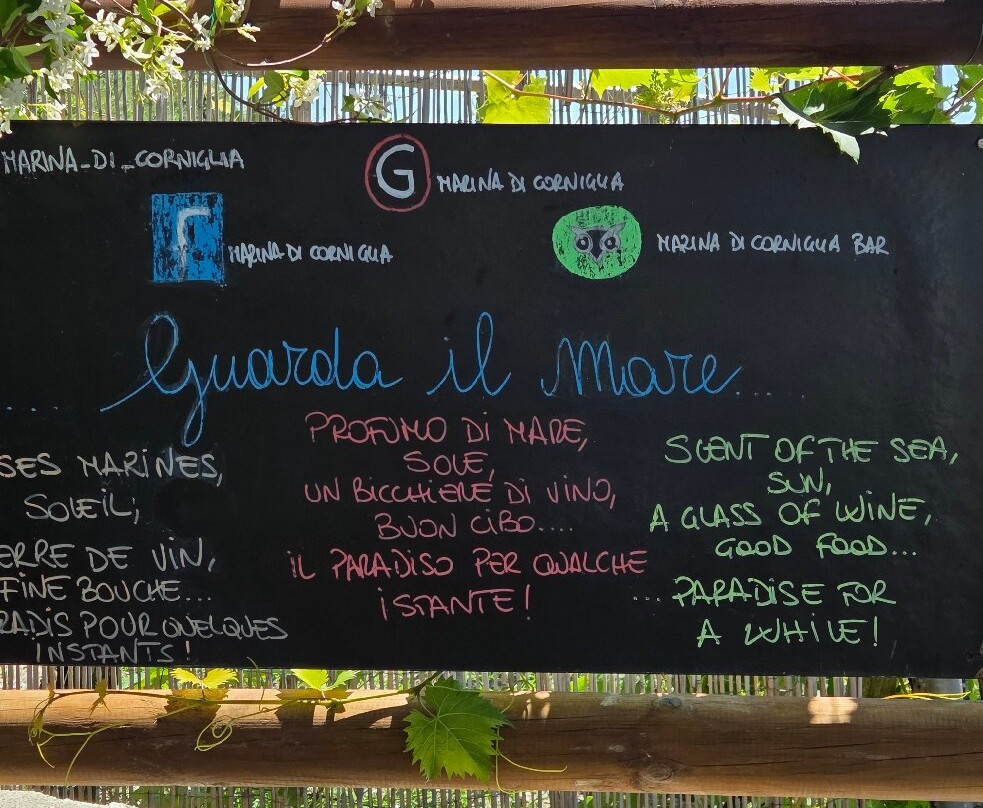 MARINA_DI_CORNIGLIA
G MARINA DI CORNIGLIA
f MARINA DI CORNIGLIA
MARINA DI CORNIGLIA BAR
Guarda il Mare....
SES MARINES,
SOLEIL;
ERRE DE VIN,
FINE BOUCHE...
RADIS POUR QUELQUES
INSTANTS!
PROFUMO DI MARE,
SOLE,
UN BICCHIERE DI VINO,
BUON CIBO....
IL PARADISO PER QUALCHE
iSTANTE!
SCENT OF THE SEA,
SUN,
A GLASS OF WINE,
GOOD FOOD...
... PARADISE FOR
A WHILE!